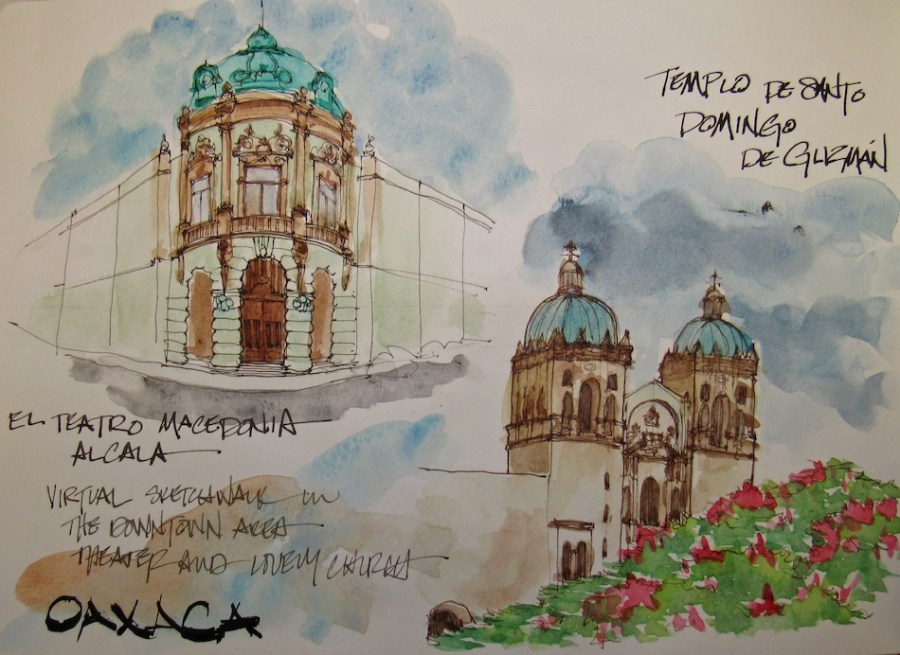 TEMPLO DE SANTO
DOMINGO
DE GUZMÁN
EL TEATRO MACEDONIA
ALCALA
VIRTUAL SKETCHWALK IN
THE DOWNTOWN AREA
THEATER AND LOVELY CHURCH
OAXACA